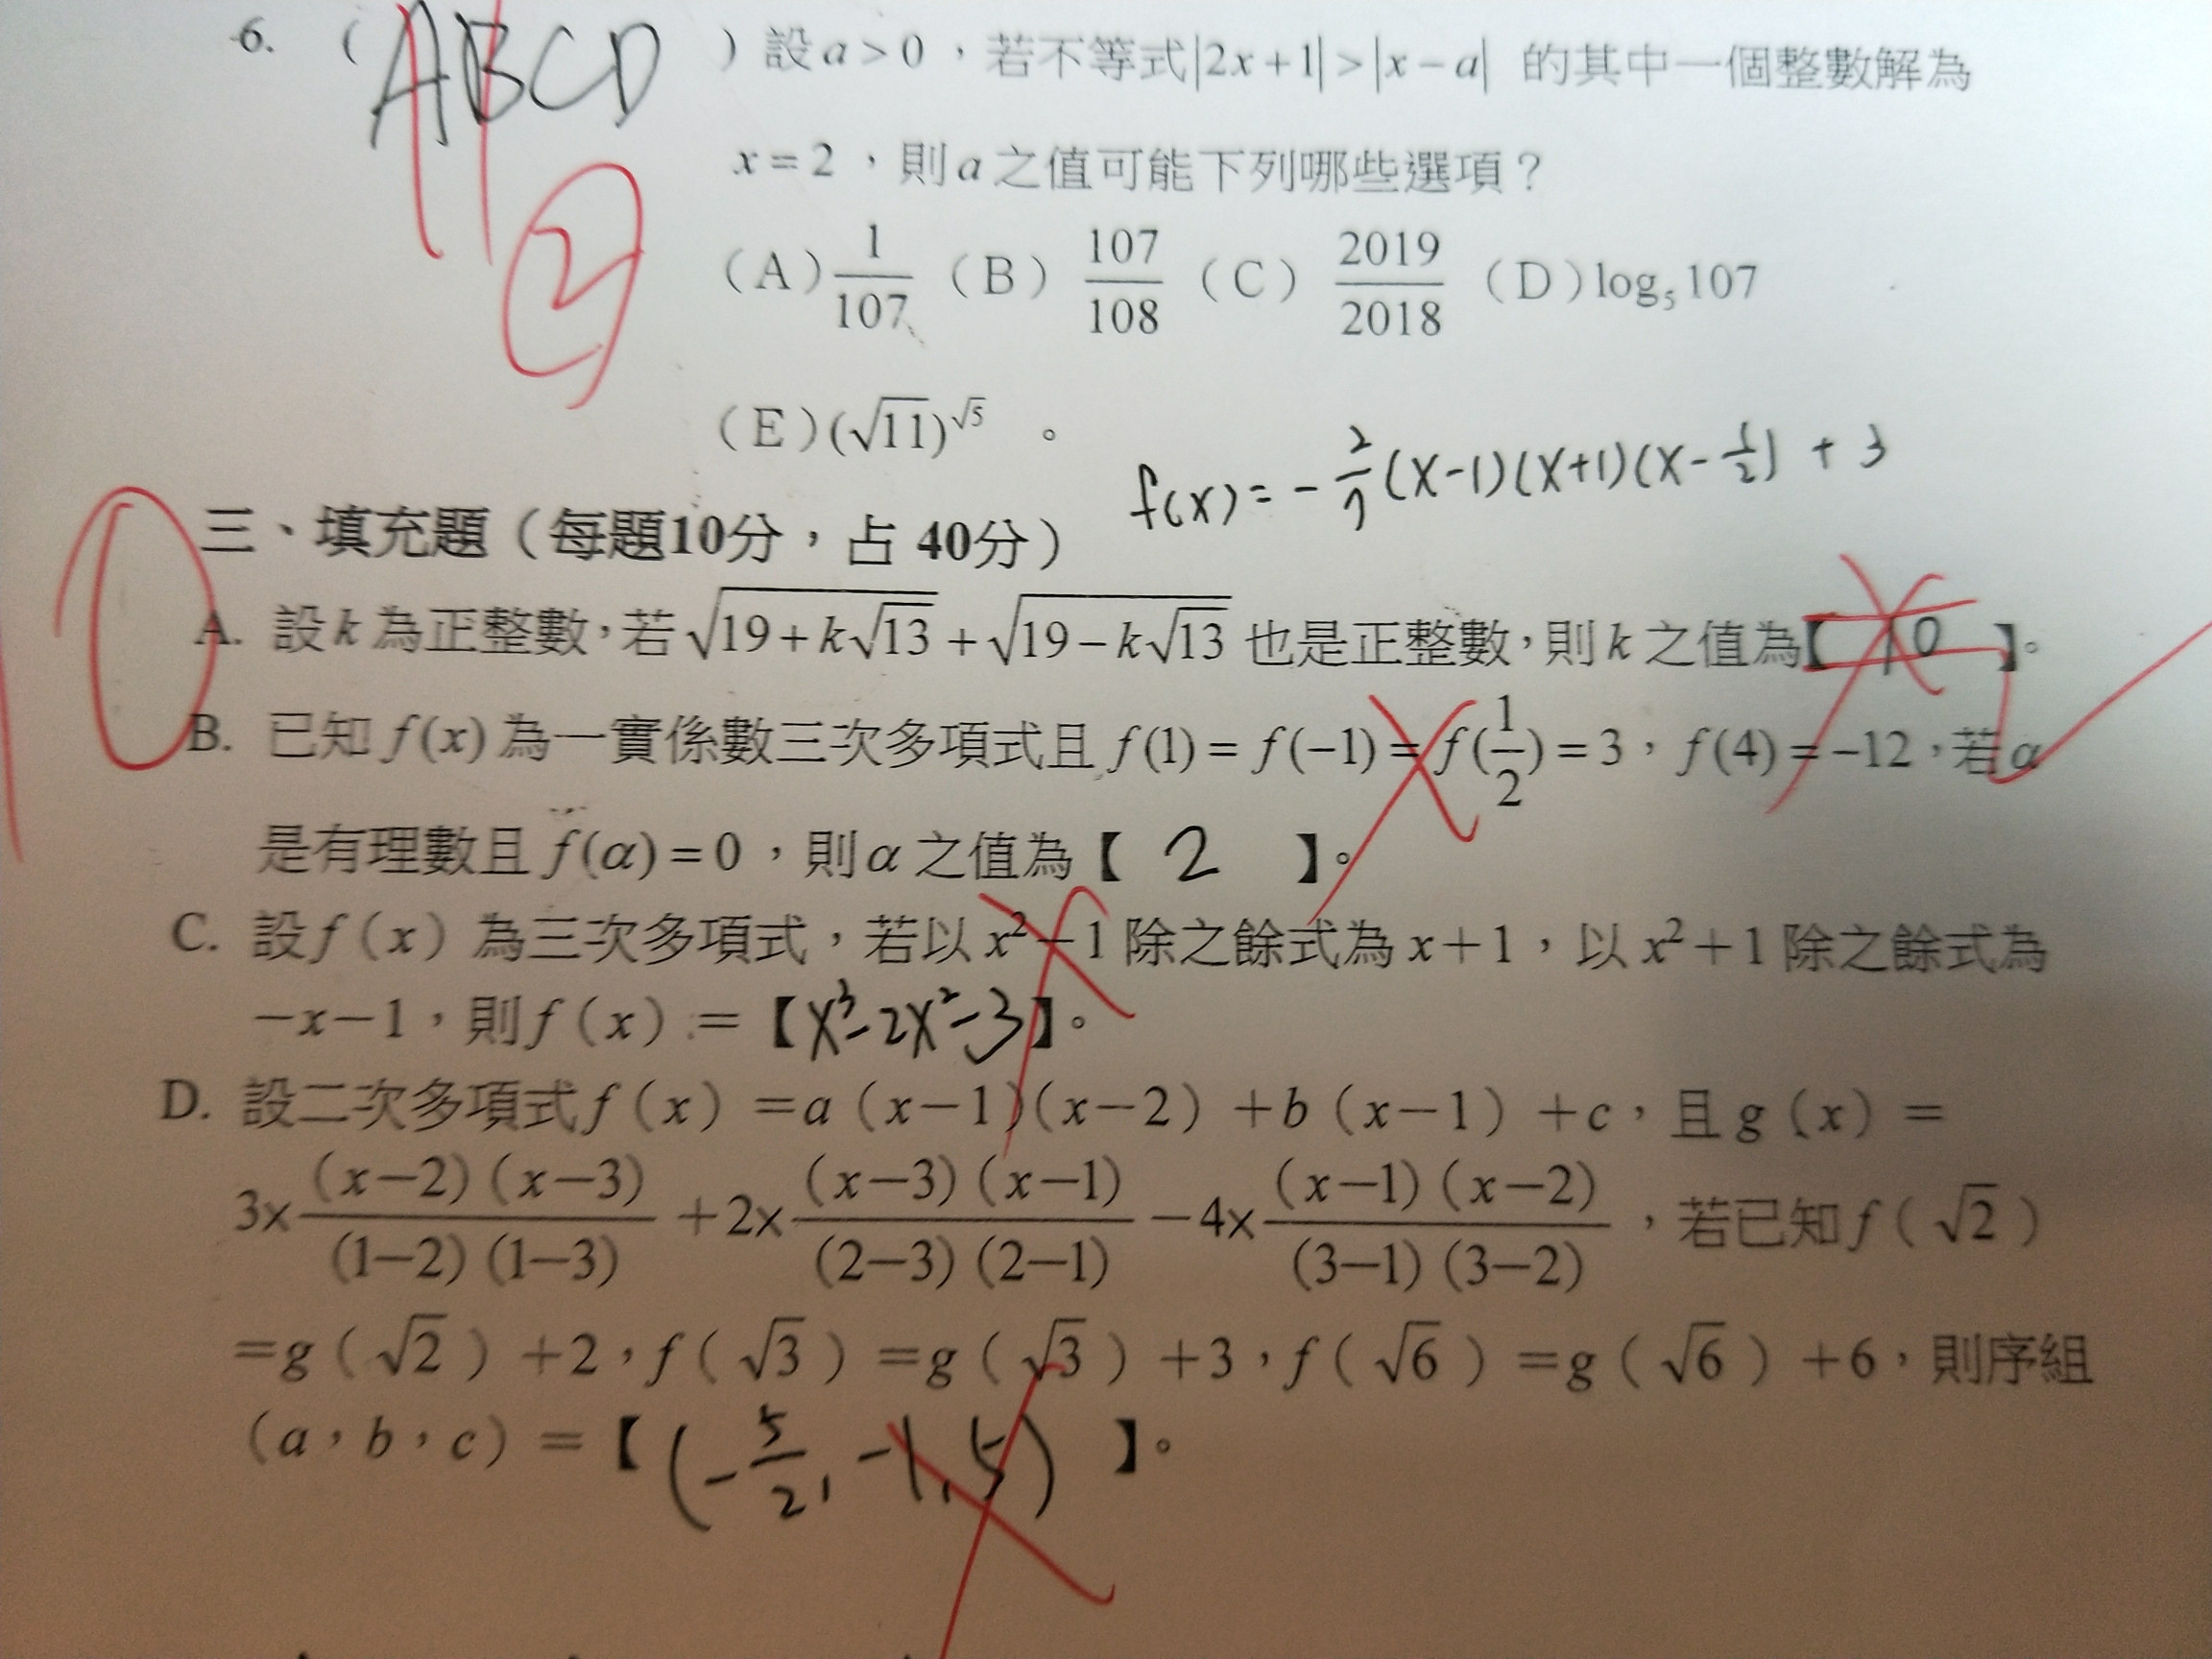 6. ( ABCD ) 設 a > 0 ，若不等式 |2x+1| > |x−a| 的其中一個整數解為
x = 2 ，則 a 之值可能下列哪些選項？
(A) 1/107 (B) 107/108 (C) 2019/2018 (D) log₅107
(E) (√11)^√5 。
2
f(x) = - 2/7 (x-1)(x+1)(x-1/2) + 3
三、填充題（每題10分，占 40分）
A. 設 k 為正整數，若 √(19+k√13) + √(19−k√13) 也是正整數，則 k 之值為【 10 】。
B. 已知 f(x) 為一實係數三次多項式且 f(1) = f(−1) = f(1/2) = 3 ， f(4) = −12 ，若 α
是有理數且 f(α) = 0 ，則 α 之值為【 2 】。
C. 設 f (x) 為三次多項式，若以 x²−1 除之餘式為 x+1 ，以 x²+1 除之餘式為
−x−1 ，則 f (x) ＝【 x³-2x²-3 】。
D. 設二次多項式 f (x) ＝a (x−1)(x−2) ＋b (x−1) ＋c ，且 g (x) ＝
3× (x−2)(x−3)/(1−2)(1−3) ＋2× (x−3)(x−1)/(2−3)(2−1) −4× (x−1)(x−2)/(3−1)(3−2) ，若已知 f ( √2 )
＝g ( √2 ) ＋2 ，f ( √3 ) ＝g ( √3 ) ＋3 ，f ( √6 ) ＝g ( √6 ) ＋6 ，則序組
(a，b，c) ＝【 (-5/2, -1, 5) 】。